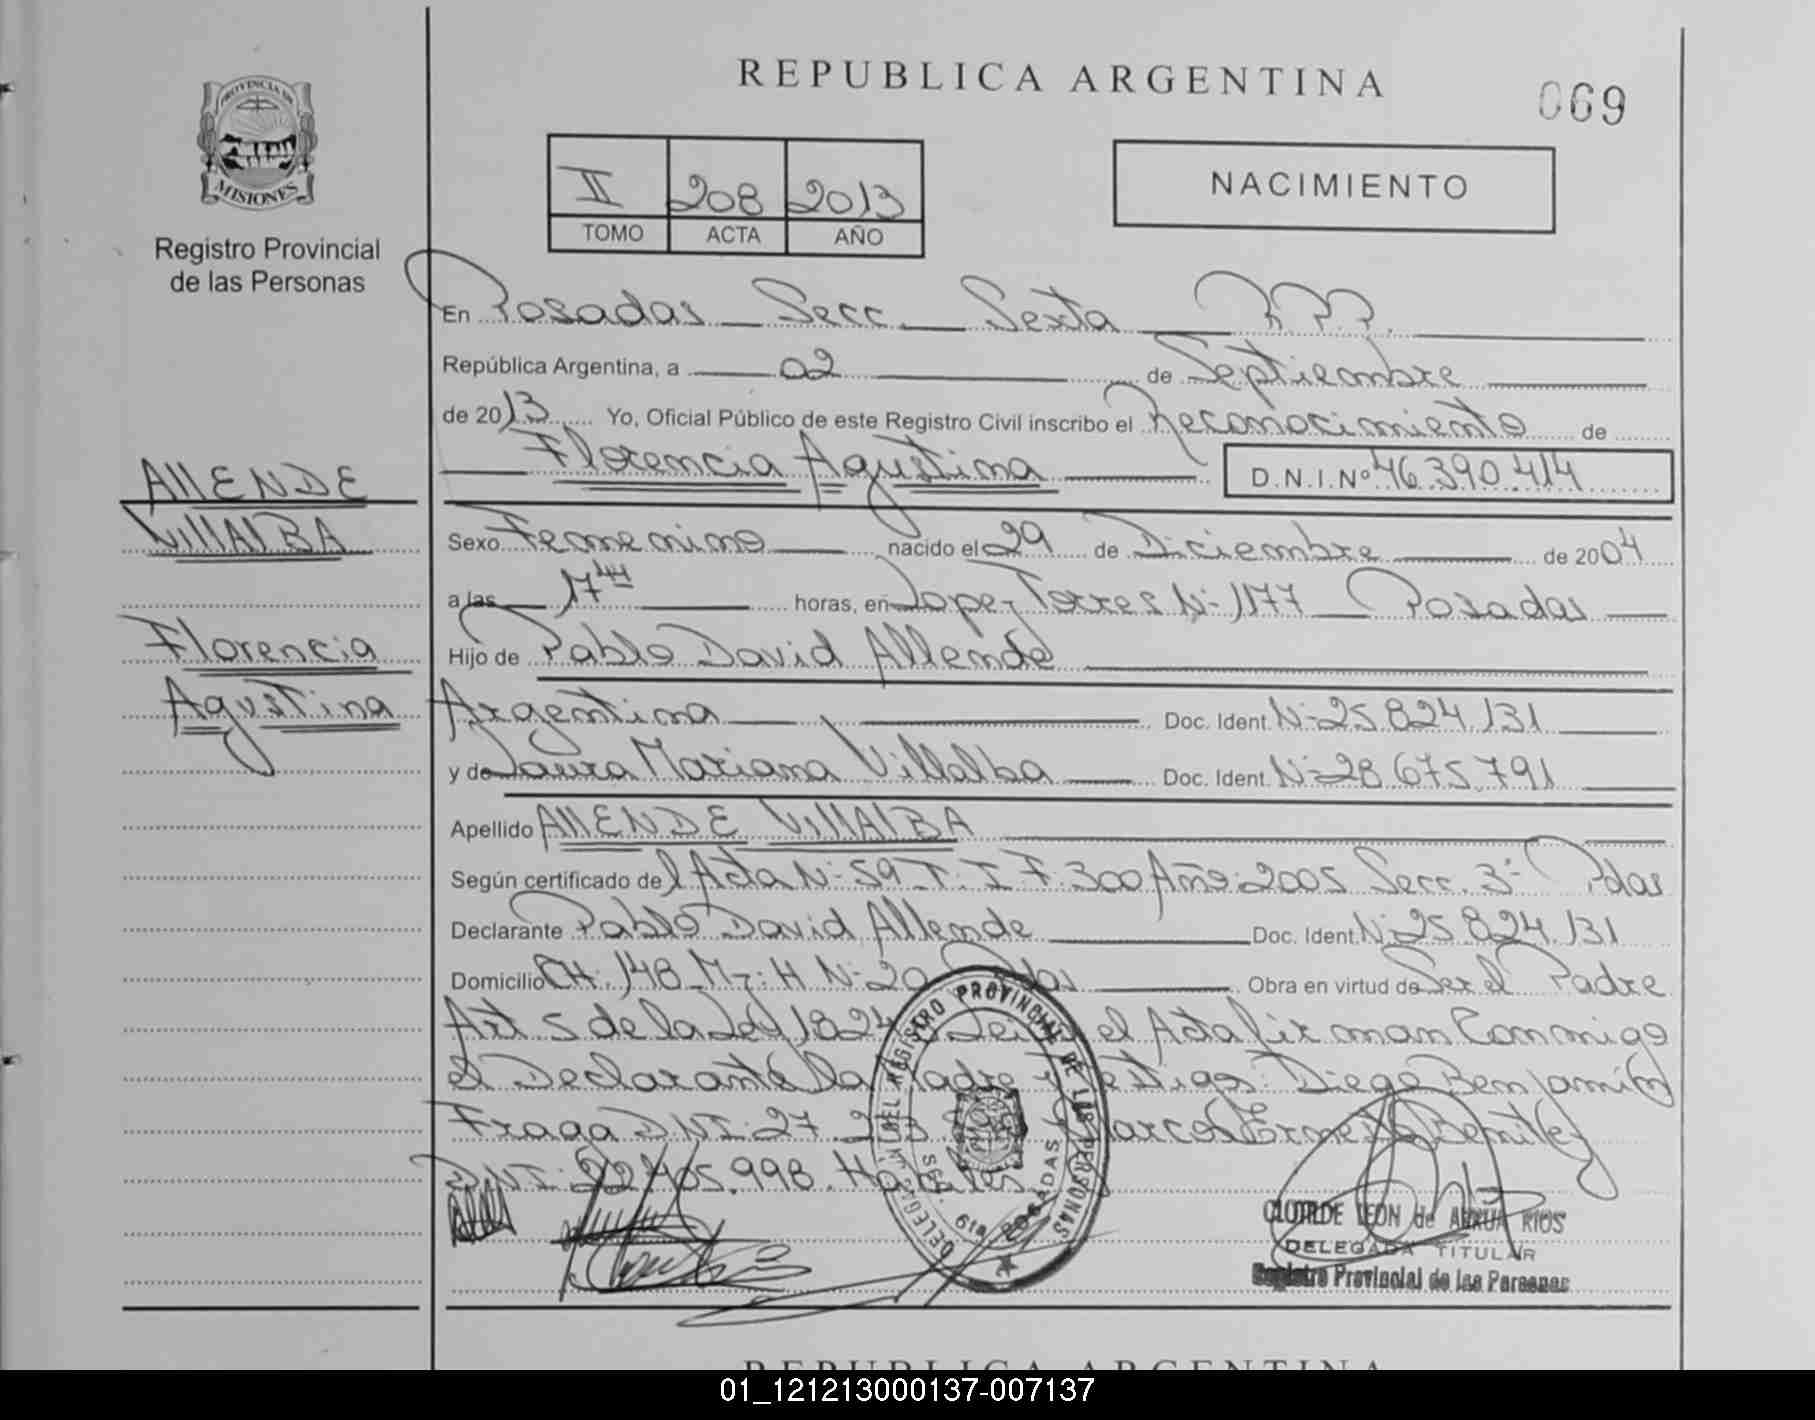 REPUBLICA ARGENTINA
069
PROVINCIA DE
MISIONES
Registro Provincial
de las Personas
II 208 2013
TOMO ACTA AÑO
NACIMIENTO
En Posadas Secc. Sexta R.P.P.
República Argentina, a 02 de Septiembre
de 2013 Yo, Oficial Público de este Registro Civil inscribo el Reconocimiento de
Florencia Agustina D.N.I.Nº 46.390.414
ALLENDE
VILLALBA
Florencia
Agustina
Sexo Femenino nacido el 29 de Diciembre de 2004
a las 17 horas, en Lopez Torres Nº 1177 Posadas
Hijo de Pablo David Allende
Argentina Doc. Ident. Nº 25.824.131
y de Laura Mariana Villalba Doc. Ident. Nº 28.675.791
Apellido ALLENDE VILLALBA
Según certificado del Acta Nº 59 T. I F. 300 Año 2005 Secc. 3º Pdas
Declarante Pablo David Allende Doc. Ident. Nº 25.824.131
Domicilio CH. 148 Mz: H Nº 20 Pdas Obra en virtud de Ser el Padre
Art 5 de la Ley 1824 el Acta firman Conmigo
el Declarante La Madre Testigos: Diego Benjamín
Fraga DNI: 27. Marcos Ernesto Benitez
DNI: 22.405.998. Hábiles
DELEGACIÓN DEL REGISTRO PROVINCIAL DE LAS PERSONAS
SEC. 6ta POSADAS
CLOTILDE LEON de RIOS
DELEGADA TITULAR
Registro Provincial de las Personas
REPUBLICA ARGENTINA
01_121213000137-007137